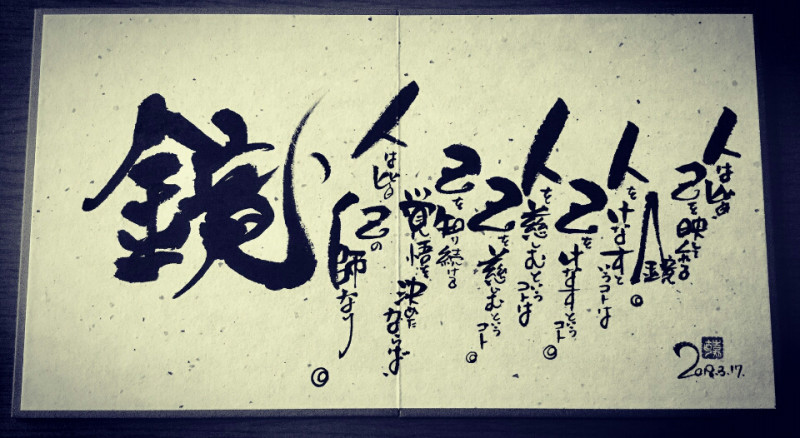 人は皆
己を映
鏡。
人をけなすと
いうコトは
己をけなすという
コト。
人を慈しむという
コトは
己を慈しむという
コト。
己を知り続ける
覚悟を決めた
ならば、
人は皆
己の師なり。
鏡
2018.3.17.